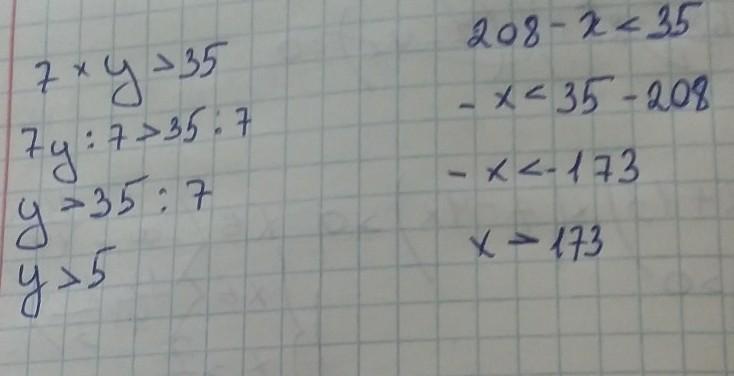 7 × y > 35
7y : 7 > 35 : 7
y > 35 : 7
y > 5
208 - x < 35
- x < 35 - 208
- x < - 173
x > 173